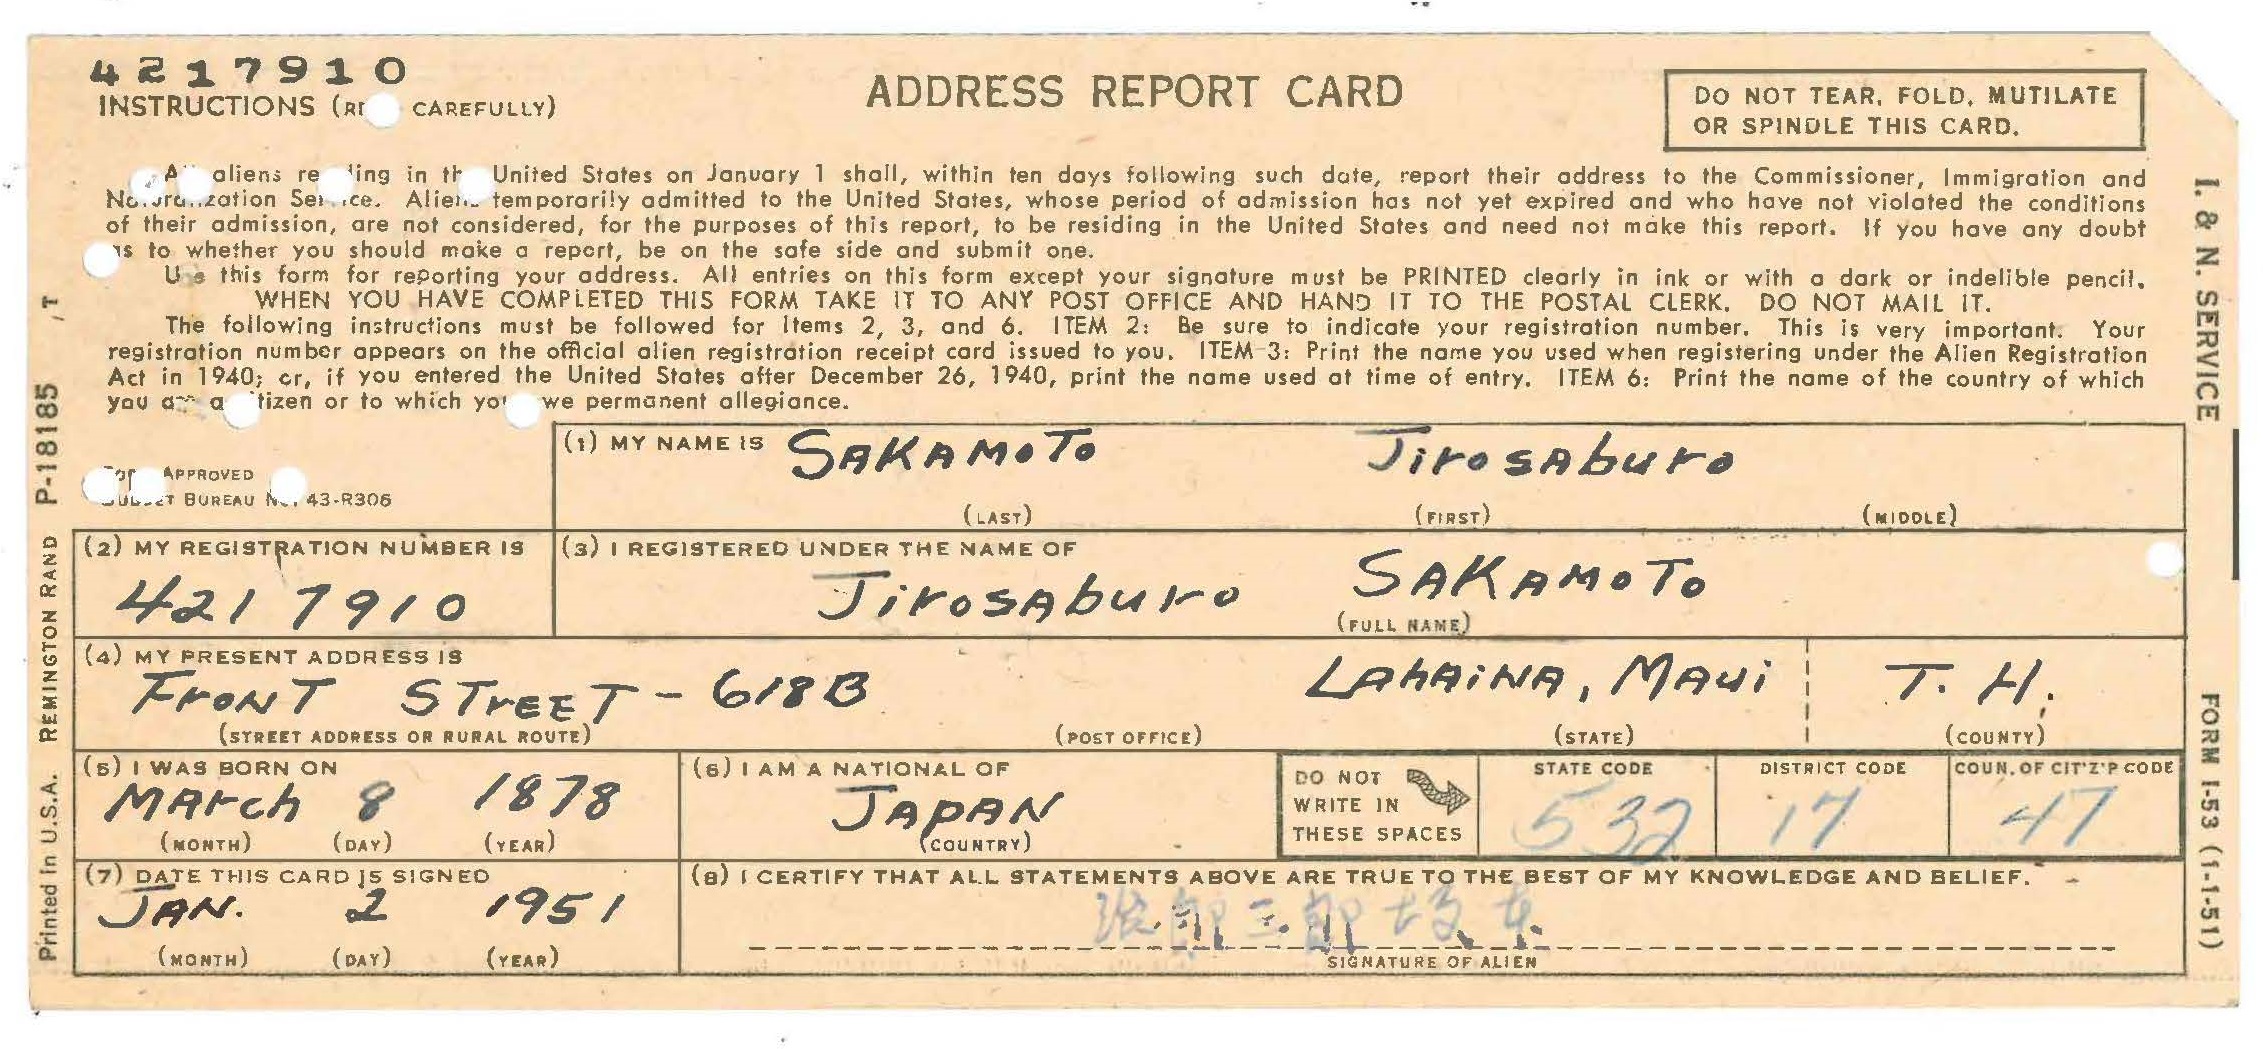 4217910
INSTRUCTIONS ( CAREFULLY)
ADDRESS REPORT CARD
DO NOT TEAR, FOLD, MUTILATE
OR SPINDLE THIS CARD.
aliens in United States on January 1 shall, within ten days following such date, report their address to the Commissioner, Immigration and
temporarily admitted to the United States, whose period of admission has not yet expired and who have not violated the conditions
of their admission, are not considered, for the purposes of this report, to be residing in the United States and need not make this report. If you have any doubt
to whether you should make a report, be on the safe side and submit one.
Use this form for reporting your address. All entries on this form except your signature must be PRINTED clearly in ink or with a dark or indelible pencil.
WHEN YOU HAVE COMPLETED THIS FORM TAKE IT TO ANY POST OFFICE AND HAND IT TO THE POSTAL CLERK. DO NOT MAIL IT.
The following instructions must be followed for Items 2, 3, and 6. ITEM 2: Be sure to indicate your registration number. This is very important. Your
registration number appears on the official alien registration receipt card issued to you. ITEM 3: Print the name you used when registering under the Alien Registration
Act in 1940; or, if you entered the United States after December 26, 1940, print the name used at time of entry. ITEM 6: Print the name of the country of which
you or to which permanent allegiance.
APPROVED
BUREAU 43-R306
(1) MY NAME IS SAKAMOTO Jirosaburo
(LAST) (FIRST) (MIDDLE)
(2) MY REGISTRATION NUMBER IS
4217910
(3) I REGISTERED UNDER THE NAME OF
Jirosaburo SAKAMOTO
(FULL NAME)
(4) MY PRESENT ADDRESS IS
FRONT STREET - 618B LAHAINA, MAUI T. H.
(STREET ADDRESS OR RURAL ROUTE) (POST OFFICE) (STATE) (COUNTY)
(5) I WAS BORN ON
MARCH 8 1878
(MONTH) (DAY) (YEAR)
(6) I AM A NATIONAL OF
JAPAN
(COUNTRY)
DO NOT
WRITE IN
THESE SPACES
STATE CODE
532
DISTRICT CODE
17
COUN. OF CIT'Z'P CODE
47
(7) DATE THIS CARD IS SIGNED
JAN. 2 1951
(MONTH) (DAY) (YEAR)
(8) I CERTIFY THAT ALL STATEMENTS ABOVE ARE TRUE TO THE BEST OF MY KNOWLEDGE AND BELIEF.
郎三郎坂本
SIGNATURE OF ALIEN
Printed in U.S.A. REMINGTON RAND P-18185 T
I. & N. SERVICE
FORM I-53 (1-1-51)